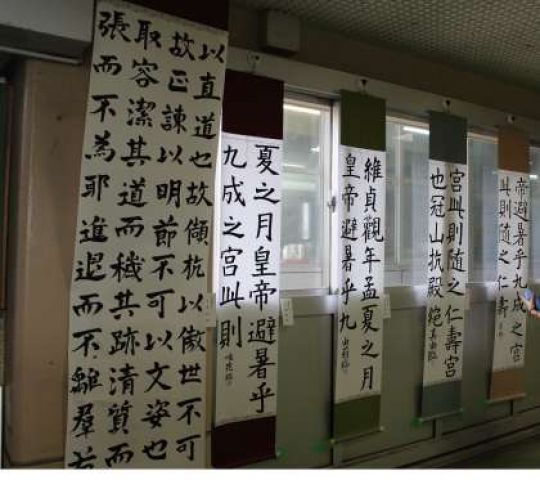 帝避暑乎九成之宮
此則隨之仁壽
宮此則隨之仁壽宮
也冠山抗殿絕
維貞觀年孟夏之月
皇帝避暑乎九
夏之月皇帝避暑乎
九成之宮此則
以直道也故傾抗以傲世不可
故正諫以明節不可以文姿也
取容潔其道而穢其跡清質而
張而不為耶進退而不離羣